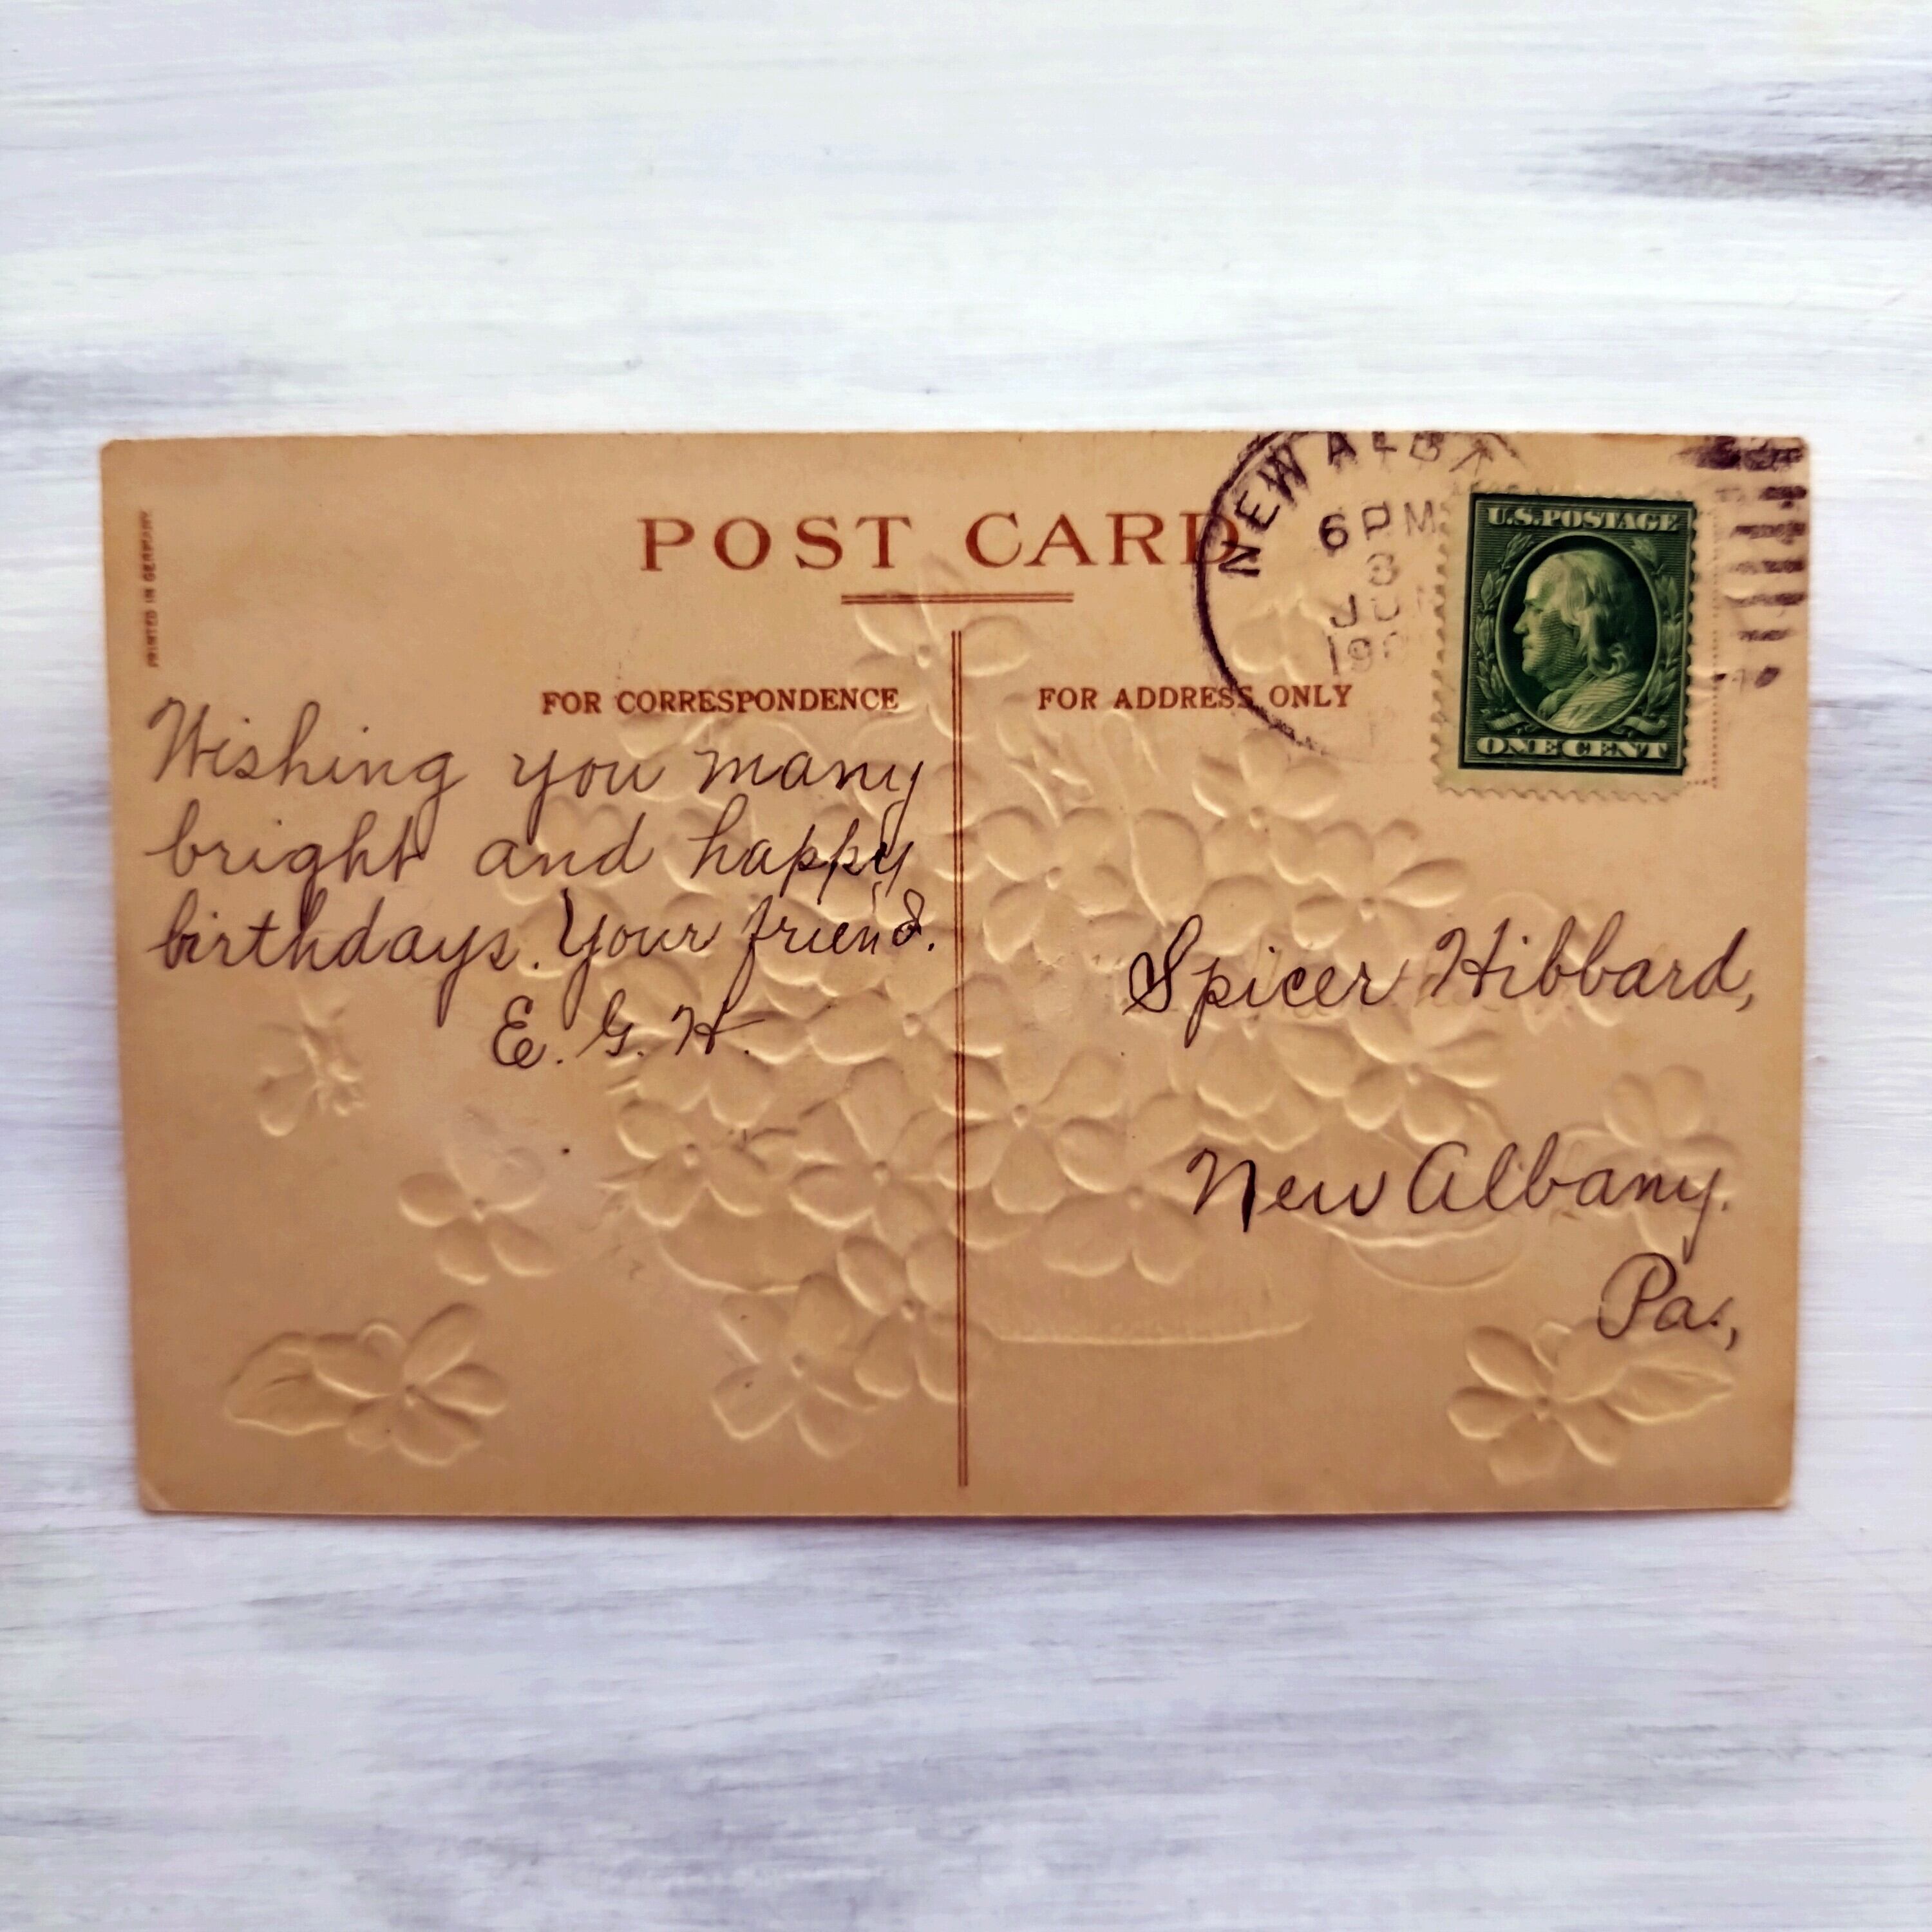 PRINTED IN GERMANY
POST CARD
NEW ALBA
6 PM
8
JU
19
U.S. POSTAGE
ONE CENT
FOR CORRESPONDENCE
FOR ADDRESS ONLY
Wishing you many
bright and happy
birthdays. Your friend.
E. G. H.
Spicer Hibbard,
New Albany.
Pa.,